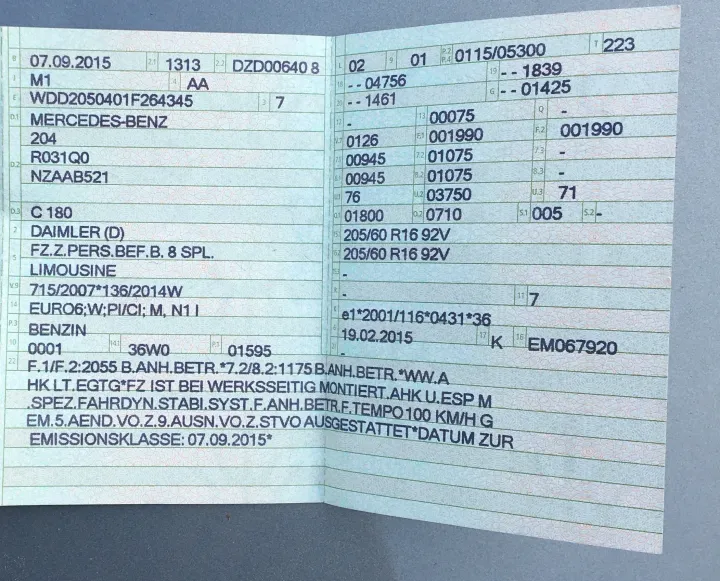 B 07.09.2015 2.1 1313 2.2 DZD00640 8
J M1 4 AA
E WDD2050401F264345 3 7
D.1 MERCEDES-BENZ
204
D.2 R031Q0
NZAAB521
D.3 C 180
2 DAIMLER (D)
5 FZ.Z.PERS.BEF.B. 8 SPL.
LIMOUSINE
V.9 715/2007*136/2014W
14 EURO6;W;PI/CI; M, N1 I
P.3 BENZIN
10 0001 14.1 36W0 P.1 01595
22 F.1/F.2:2055 B.ANH.BETR.*7.2/8.2:1175 B.ANH.BETR.*WW.A
HK LT.EGTG*FZ IST BEI WERKSSEITIG MONTIERT.AHK U.ESP M
.SPEZ.FAHRDYN.STABI.SYST.F.ANH.BETR.F.TEMPO 100 KM/H G
EM.5.AEND.VO.Z.9.AUSN.VO.Z.STVO AUSGESTATTET*DATUM ZUR
EMISSIONSKLASSE: 07.09.2015*
L 02 9 01 P.2 P.4 0115/05300 T 223
18 - - 04756 19 - - 1839
20 - - 1461 G - - 01425
12 - 13 00075 Q -
V.7 0126 F.1 001990 F.2 001990
7.1 00945 7.2 01075 7.3 -
8.1 00945 8.2 01075 8.3 -
U.1 76 U.2 03750 U.3 71
O.1 01800 O.2 0710 S.1 005 S.2 -
15.1 205/60 R16 92V
15.2 205/60 R16 92V
15.3 -
R - 11 7
K e1*2001/116*0431*36
6 19.02.2015 17 K 16 EM067920
21 -